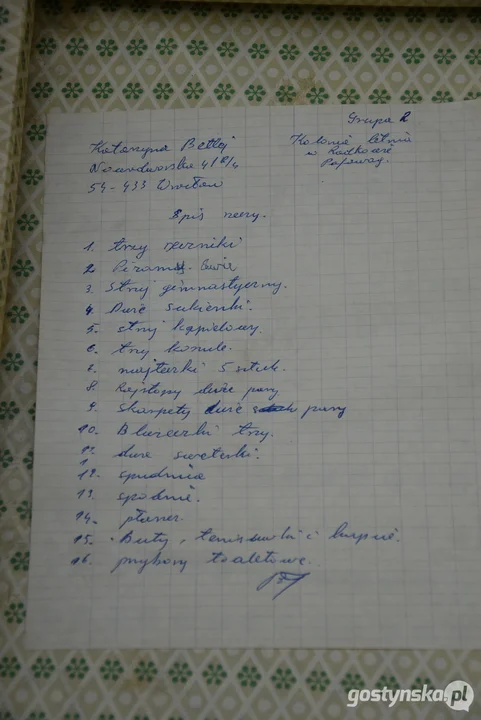 Grupa 2
Katarzyna
Kolonie letnie
Nowodworska
w Radkowie
54-433 Wrocław
Spis rzeczy.
1. trzy ręczniki
2.
3. Strój gimnastyczny.
4. Dwie sukienki.
5. strój kąpielowy.
6. trzy koszule.
7. majteczki 5 sztuk.
8. Rajstopy dwie pary
9. Skarpety dwie pary
10. Bluzeczki trzy.
11. dwa sweterki.
12. spudnica
13. spodnie.
14. płaszcz.
15. Buty, tenisówki i kapcie.
16. przybory toaletowe.
gostynska.pl